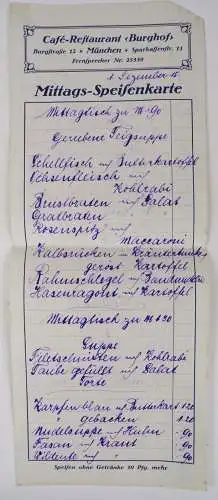 Café-Restaurant ‹Burghof›
Burgstraße 12 • München • Sparkassenstr. 11
Fernsprecher Nr. 23330
1 Dezember
Mittags-Speisenkarte
Mittagtisch zu M 90
Geriebene Teigsuppe
Schellfisch m/ Butterkartoffel
Ochsenfleisch m/ Kohlrabi
Brustbraten m/ Salat
Rosenspitz m/ Maccaroni
Kalbsrücken m/
geröst Kartoffel
Rahmschlegel m/
Hasenragout m/ Kartoffel
Mittagtisch zu M 1 30
Suppe
Filetschnitten m/ Kohlrabi
Taube gefüllt m/ Salat
Torte
Karpfen blau m/ Butterkart 1.20
gebacken 1.20
Nudelsuppe m/ Huhn 90
Fasan m/ Kraut 90
90
Speisen ohne Getränke 10 Pfg. mehr